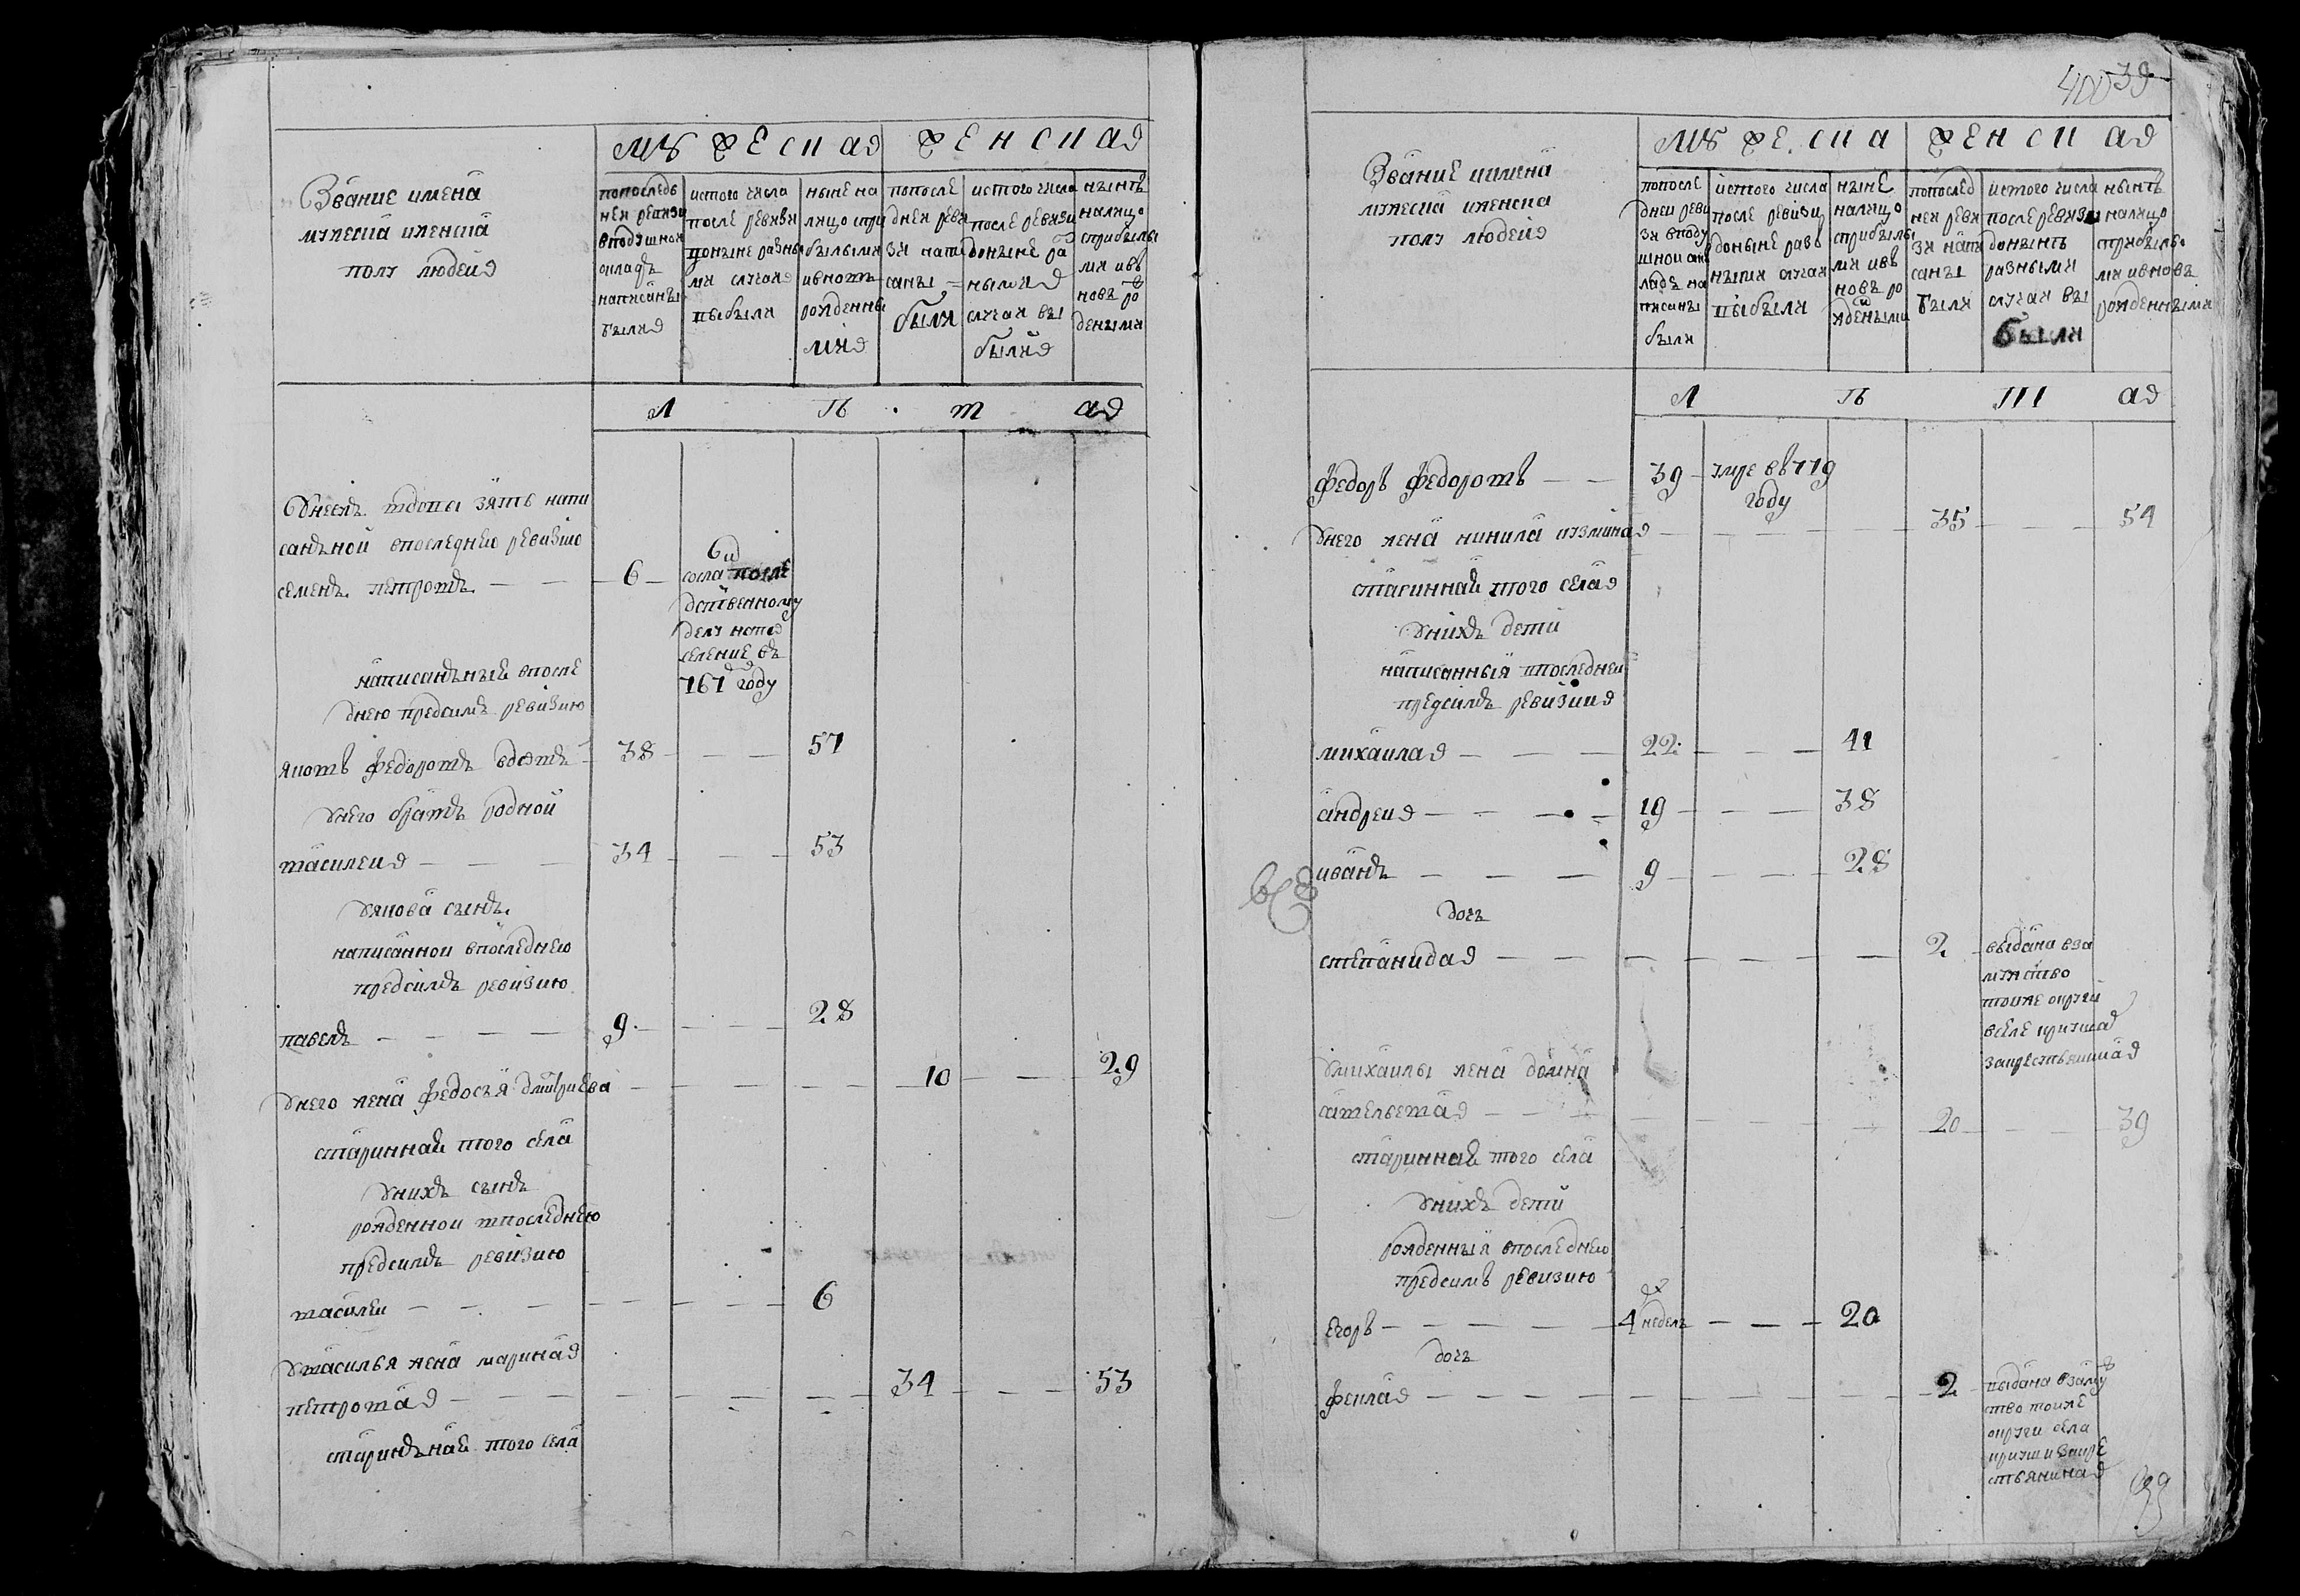 400 39
Званиe имена
мужеска иженска
полу людей
мужеская
женская
попоследь
ней ревизи
вподушном
окладе
написаны
были
истого числа
после ревизи
поныне разны
ми случая
выбыли
ныне на
лицо спри
былыми
ивновь
рожденны
ми
попосле
дней реви
зи напи
саны
были
истого числа
после ревизи
доныне ра
ными
случаи вы
были
нынѣ
налицо
сприбылы
ми ивъ
новь ро
деными
л ѣ т а
Унего вдовы зять напи
саньной впоследнею ревизию
семенъ петровъ
6
6и
сосла после
дственному
делу напо
селение въ
767 году
написанъные впосле
днею предсимъ ревизию
яковъ федоровъ вдовъ
38 57
унего братъ родной
василей
34 53
уякова сынъ
написанной впоследнею
предсимъ ревизию
павелъ
9 28
унего жена федосья дмитриева
10 29
старинная того села
унихъ сынъ
рожденной впоследнею
предсимъ ревизию
василеи
6
увасилья жена марина
петрова
34 53
старинъная того села
Звание имена
мужеска иженска
полу людей
мужеска
женская
попосле
дней реви
зи вподу
шном ок
ладе на
писаны
были
истого числа
после ревизи
доныне разъ
ными случаи
выбыли
ныне
налицо
сприбылы
ми ивъ
новь ро
ждеными
попослед
ней реви
зи напи
саны
были
истого числа
после ревизи
донынѣ
разными
случаи вы
были
нынѣ
налицо
сприбылы
ми ивновь
рожденными
л ѣ т а
федоръ федоровъ
39
умре въ 779
году
унего жена ненила кузмина
35 54
старинная того села
унихъ дети
написанныя впоследней
предсимъ ревизии
михаила
22 41
андрей
19 38
иванъ
9 28
дочь
степанида
2
выдана вза
мужство
тойже округи
вселе
закрестьянина
умихаилы жена домна
савельева
20 39
старинная того села
унихъ дети
рожденныя впоследнею
предсимъ ревизию
егоръ
4 неделъ
20
дочь
фекла
2
выдана взаму
ство тойже
округи села
закре
стьянина